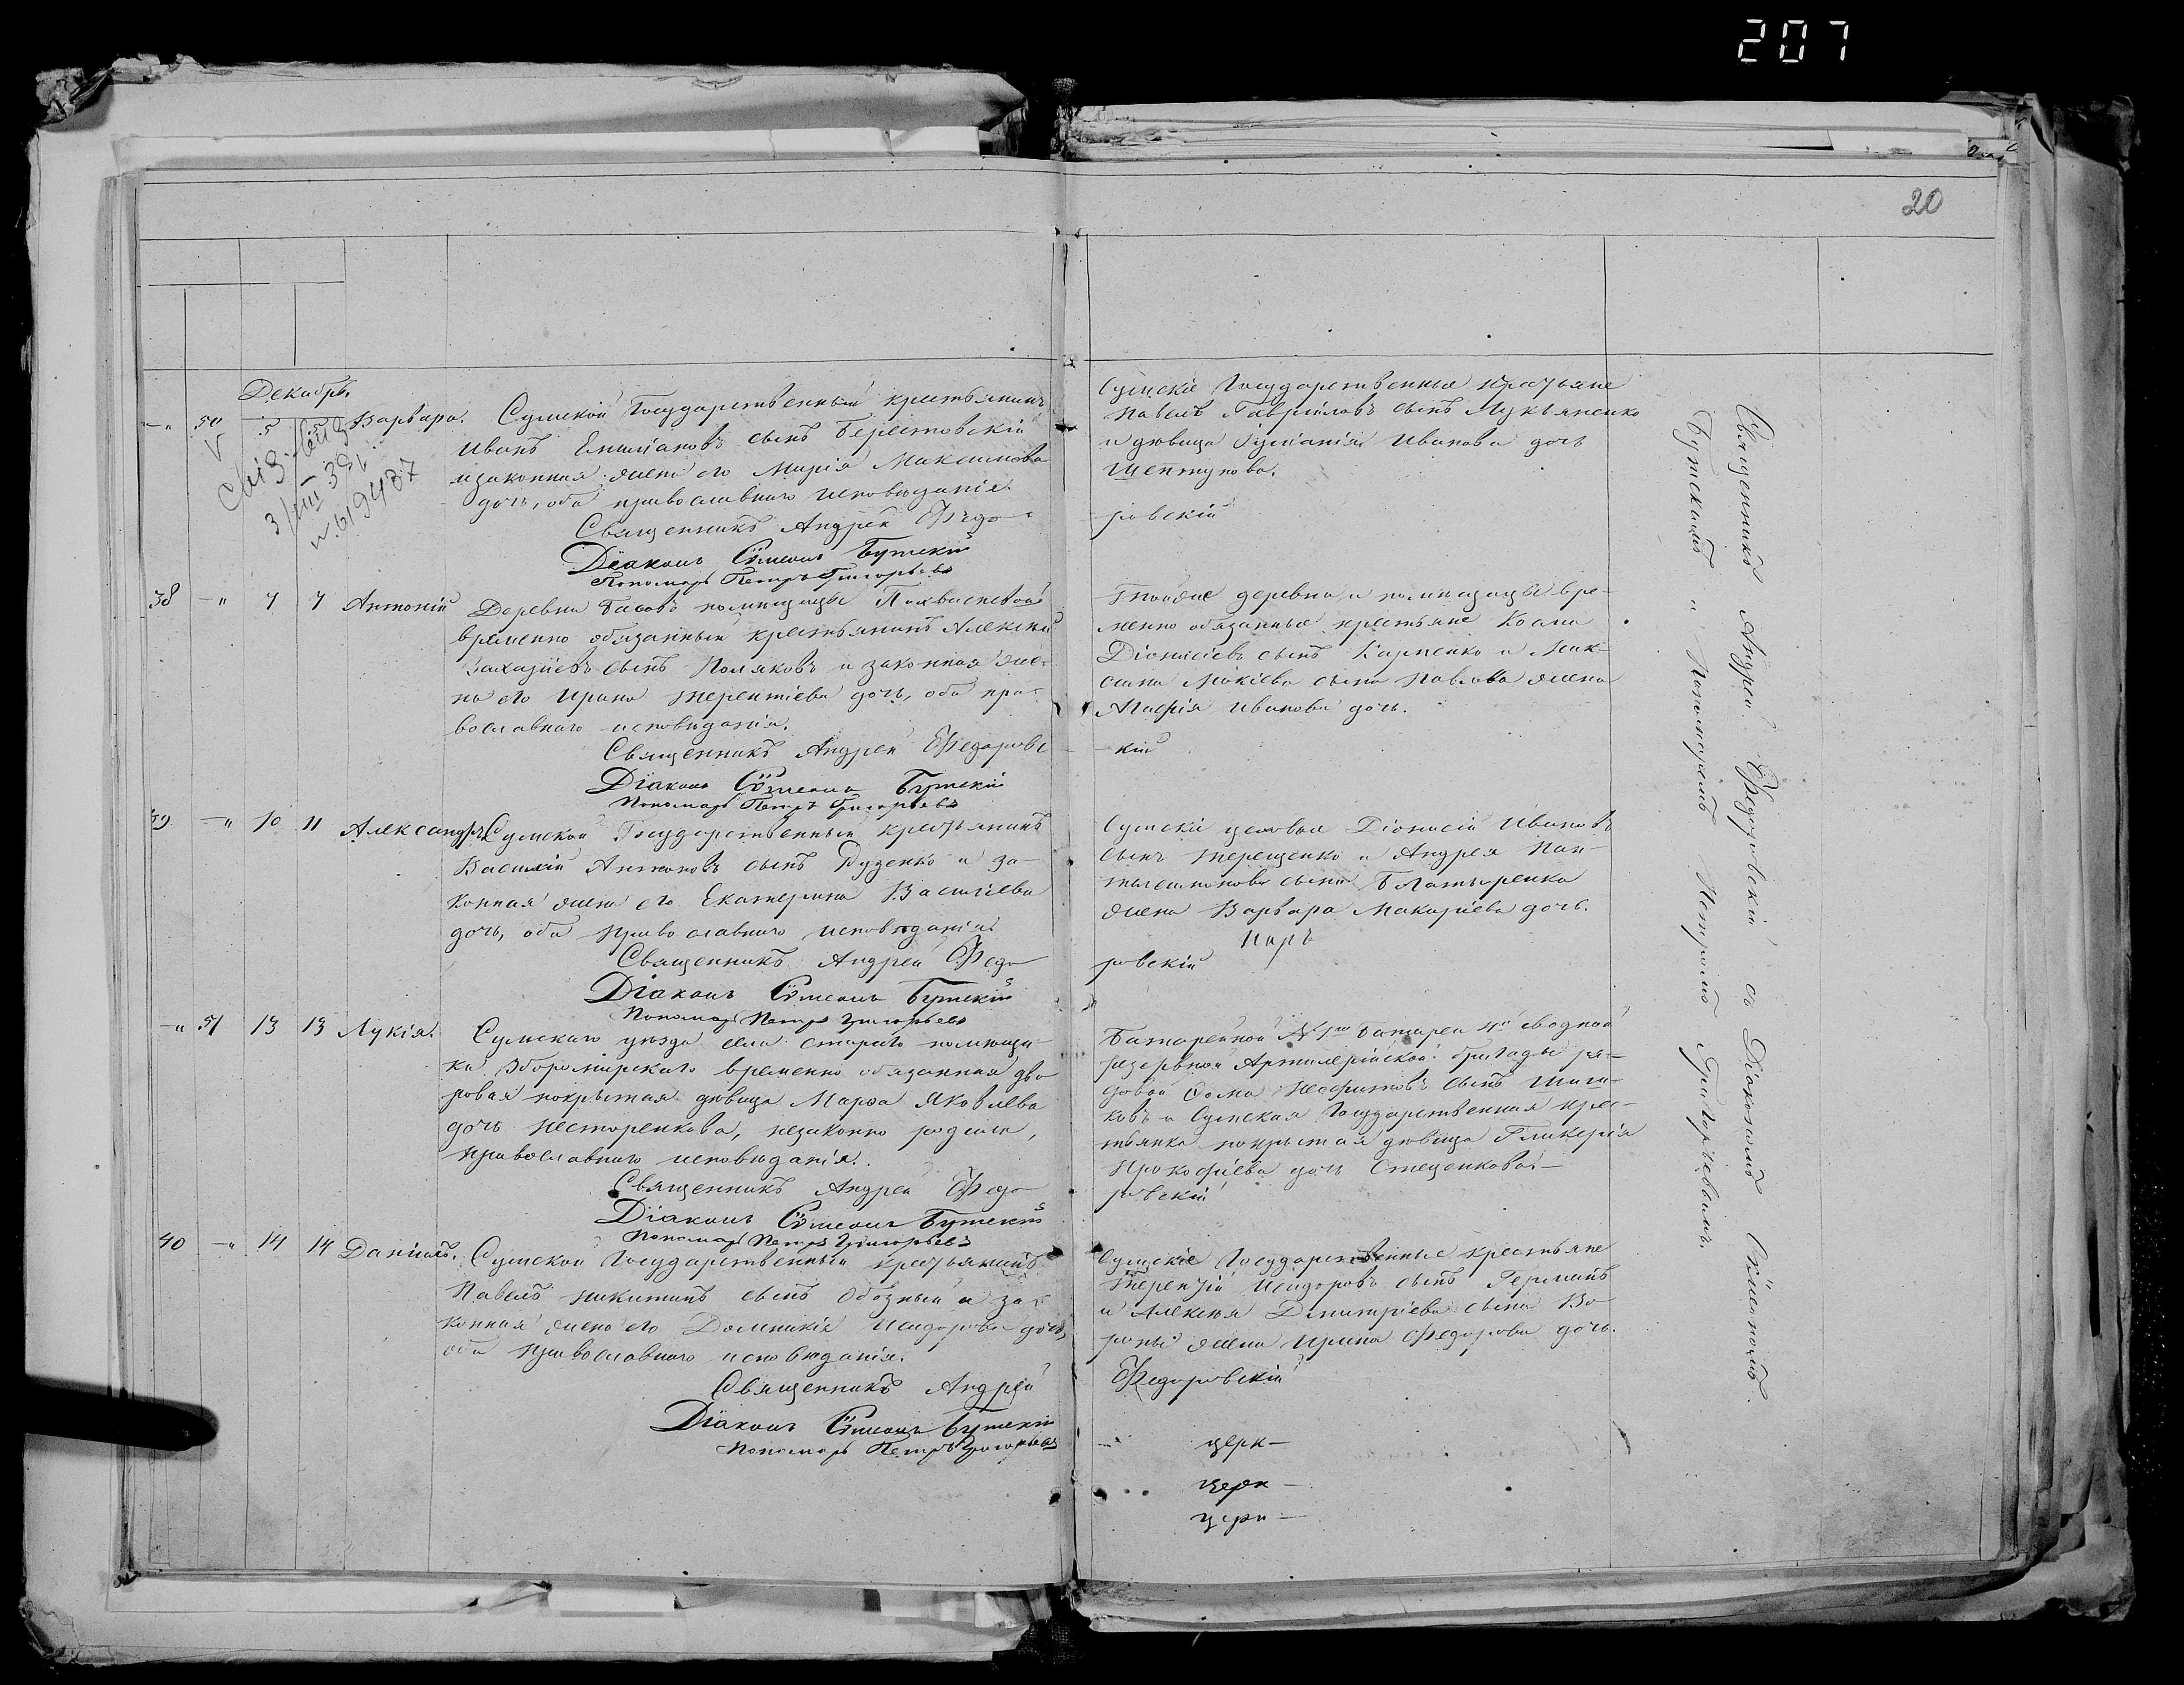 207
20
Декабрь
-„ 50 5 5 Варвара.
Сумской Государственный крестьянинъ
Иванъ Емиліановъ сынъ Берестовскій
и законная жена его Марія Максимова
дочь, оба православнаго исповѣданія.
Священникъ Андрей Федо-
Діаконъ Сѵмеонъ Бутскій
Пономарь Петръ Григорьевъ
V
3/VIII 39
№ 619437
Сумскіе Государственные крестьяне
Павелъ Гавріиловъ сынъ Лукьяненко
и дѣвица Іуліанія Иванова дочь
Шептунова.
ровскій
38 -„ 7 7 Антоній
Деревни Басовъ помѣщицы Похвисневой
временно обязанный крестьянинъ Алексѣй
Захаріевъ сынъ Поляковъ и законная же-
на его Ирина Терентіева дочь, оба пра-
вославнаго исповѣданія.
Священникъ Андрей Федоровс
Діаконъ Сѵмеонъ Бутскій
Пономарь Петръ Григорьевъ
Тойже деревни и помѣщицы вре-
менно обязанные крестьяне Косма
Діонисіевъ сынъ Карпенко и Мак-
сима Мокіева сына Павлова жена
Агафія Иванова дочь.
кій
39 -„ 10 11 Александръ
Сумской Государственный крестьянинъ
Василій Антоновъ сынъ Руденко и за-
конная жена его Екатерина Василіева
дочь, оба православнаго исповѣданія
Священникъ Андрей Федо
Діаконъ Сѵмеонъ Бутскій
Пономарь Петръ Григорьевъ
Сумскіе цеховые Діонисій Ивановъ
сынъ Терещенко и Андрея Пан-
телеимонова сына Блатыренка
жена Варвара Макаріева дочь.
ровскій
-„ 51 13 13 Лукія.
Сумскаго уѣзда села Стараго помѣщи-
ка Зборомирскаго временно обязанная дво-
ровая покрытая дѣвица Марѳа Яковлева
дочь Несторенкова, незаконно родила,
православнаго исповѣданія.
Священникъ Андрей Федо
Діаконъ Сѵмеонъ Бутскій
Пономарь Петръ Григорьевъ
Батарейной № 1го батареи 4й сводной
резервной Артилерійской бригады ря-
довой Ѳома Неофитовъ сынъ
ковъ и Сумская Государственная крес-
тьянка покрытая дѣвица Гликерія
Прокофіева дочь Стеценкова-
ровскій
40 -„ 14 14 Даніилъ.
Сумской Государственный крестьянинъ
Павелъ Никитинъ сынъ Обозный и за-
конная жена его Домникія Исидорова дочь,
оба православнаго исповѣданія.
Священникъ Андрей
Діаконъ Сѵмеонъ Бутскій
Пономарь Петръ Григорьевъ
Сумскіе Государственные крестьяне
Терентій Исидоровъ сынъ Германъ
и Алексѣя Димитріева сына Во-
роны жена Ирина Федорова дочь.
Федоровскій
церк-
церк-
церк-
Священникъ Андрей Федоровскій съ Діакономъ Сѵмеономъ
Бутскимъ и Пономаремъ Петромъ Григорьевымъ.